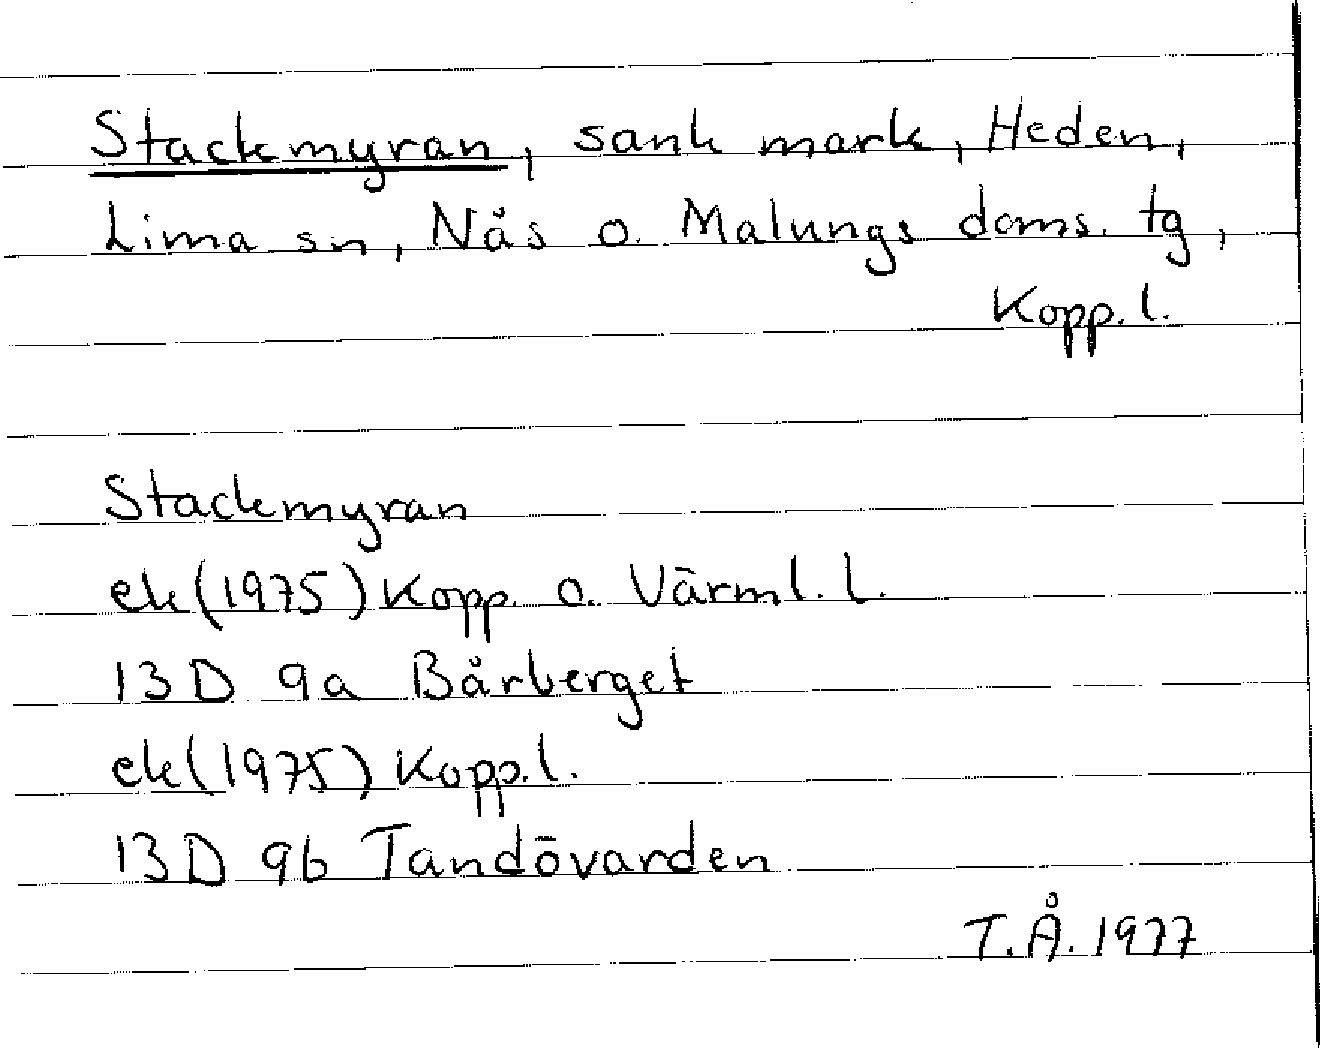 Stackmyran, sank mark, Heden,
Lima sn, Nås o. Malungs doms. tg,
Kopp. l.
Stackmyran
ek (1975) Kopp. o. Värml. l.
13 D 9a Bårberget
ek (1975) Kopp. l.
13 D 9b Tandövarden
T.Å. 1977